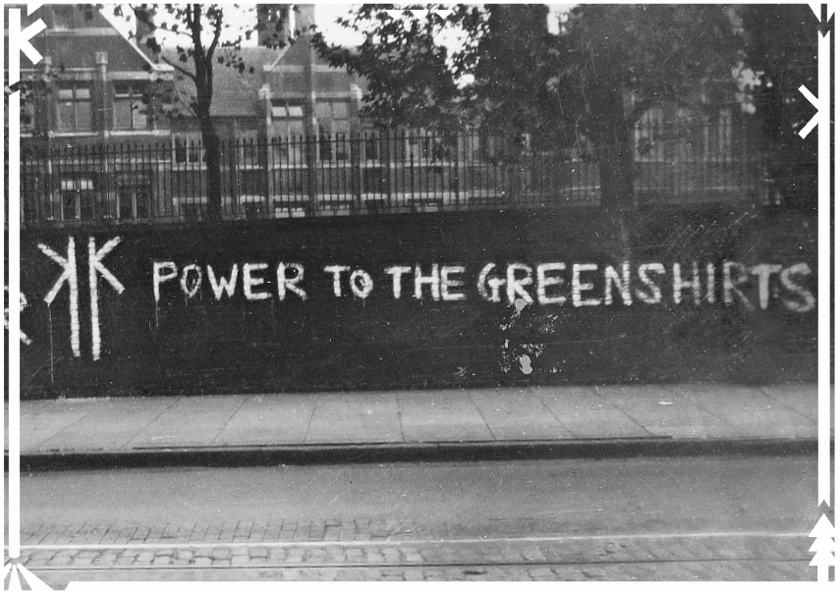 POWER TO THE GREENSHIRTS